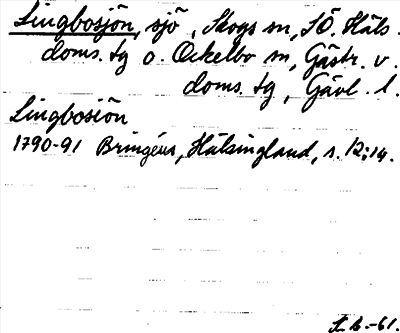 Lingbosjön, sjö, Skogs sn, SÖ. Häls.
doms. tg o. Ockelbo sn, Gästr. v.
doms. tg, Gävl. l.
Lingbosiön
1790-91 Bringéus, Hälsingland, s. 12; 14.
S. B. -61.